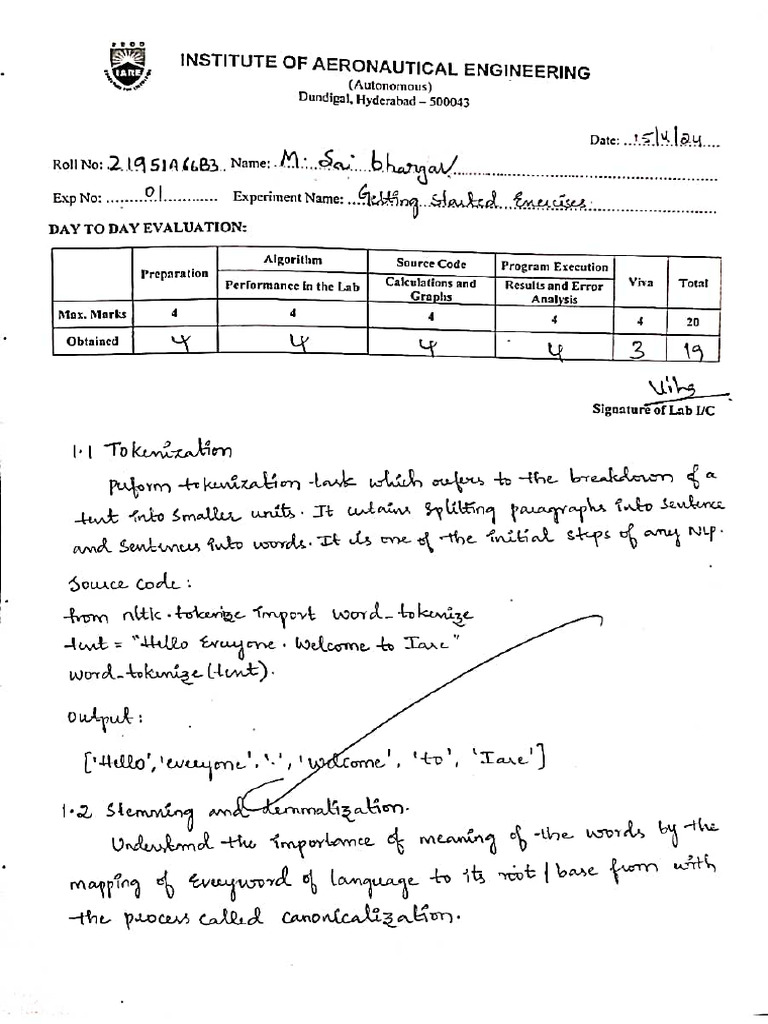 IARE
INSTITUTE OF AERONAUTICAL ENGINEERING
(Autonomous)
Dundigal, Hyderabad – 500043
Date: 15/4/24
Roll No: 21951A66B3 Name: M. Sai bhargav
Exp No: 01 Experiment Name: Getting Started Exercises.
DAY TO DAY EVALUATION:
Preparation Algorithm Source Code Program Execution Viva Total
Performance in the Lab Calculations and Graphs Results and Error Analysis
Max. Marks 4 4 4 4 4 20
Obtained 4 4 4 4 3 19
Signature of Lab I/C
1.1 Tokenization
Perform tokenization task which refers to the breakdown of a
text into smaller units. It entains splitting paragraphs into sentence
and sentences into words. It is one of the initial steps of any NLP.
Source code:
from nltk.tokenize import word_tokenize
text = "Hello Everyone. Welcome to Iare"
word_tokenize(text).
Output:
['Hello', 'everyone', '.', 'welcome', 'to', 'Iare']
1.2 Stemning and lemmatization.
Understand the importance of meaning of the words by the
mapping of Everyword of language to its root / base from with
the process called canonicalization.